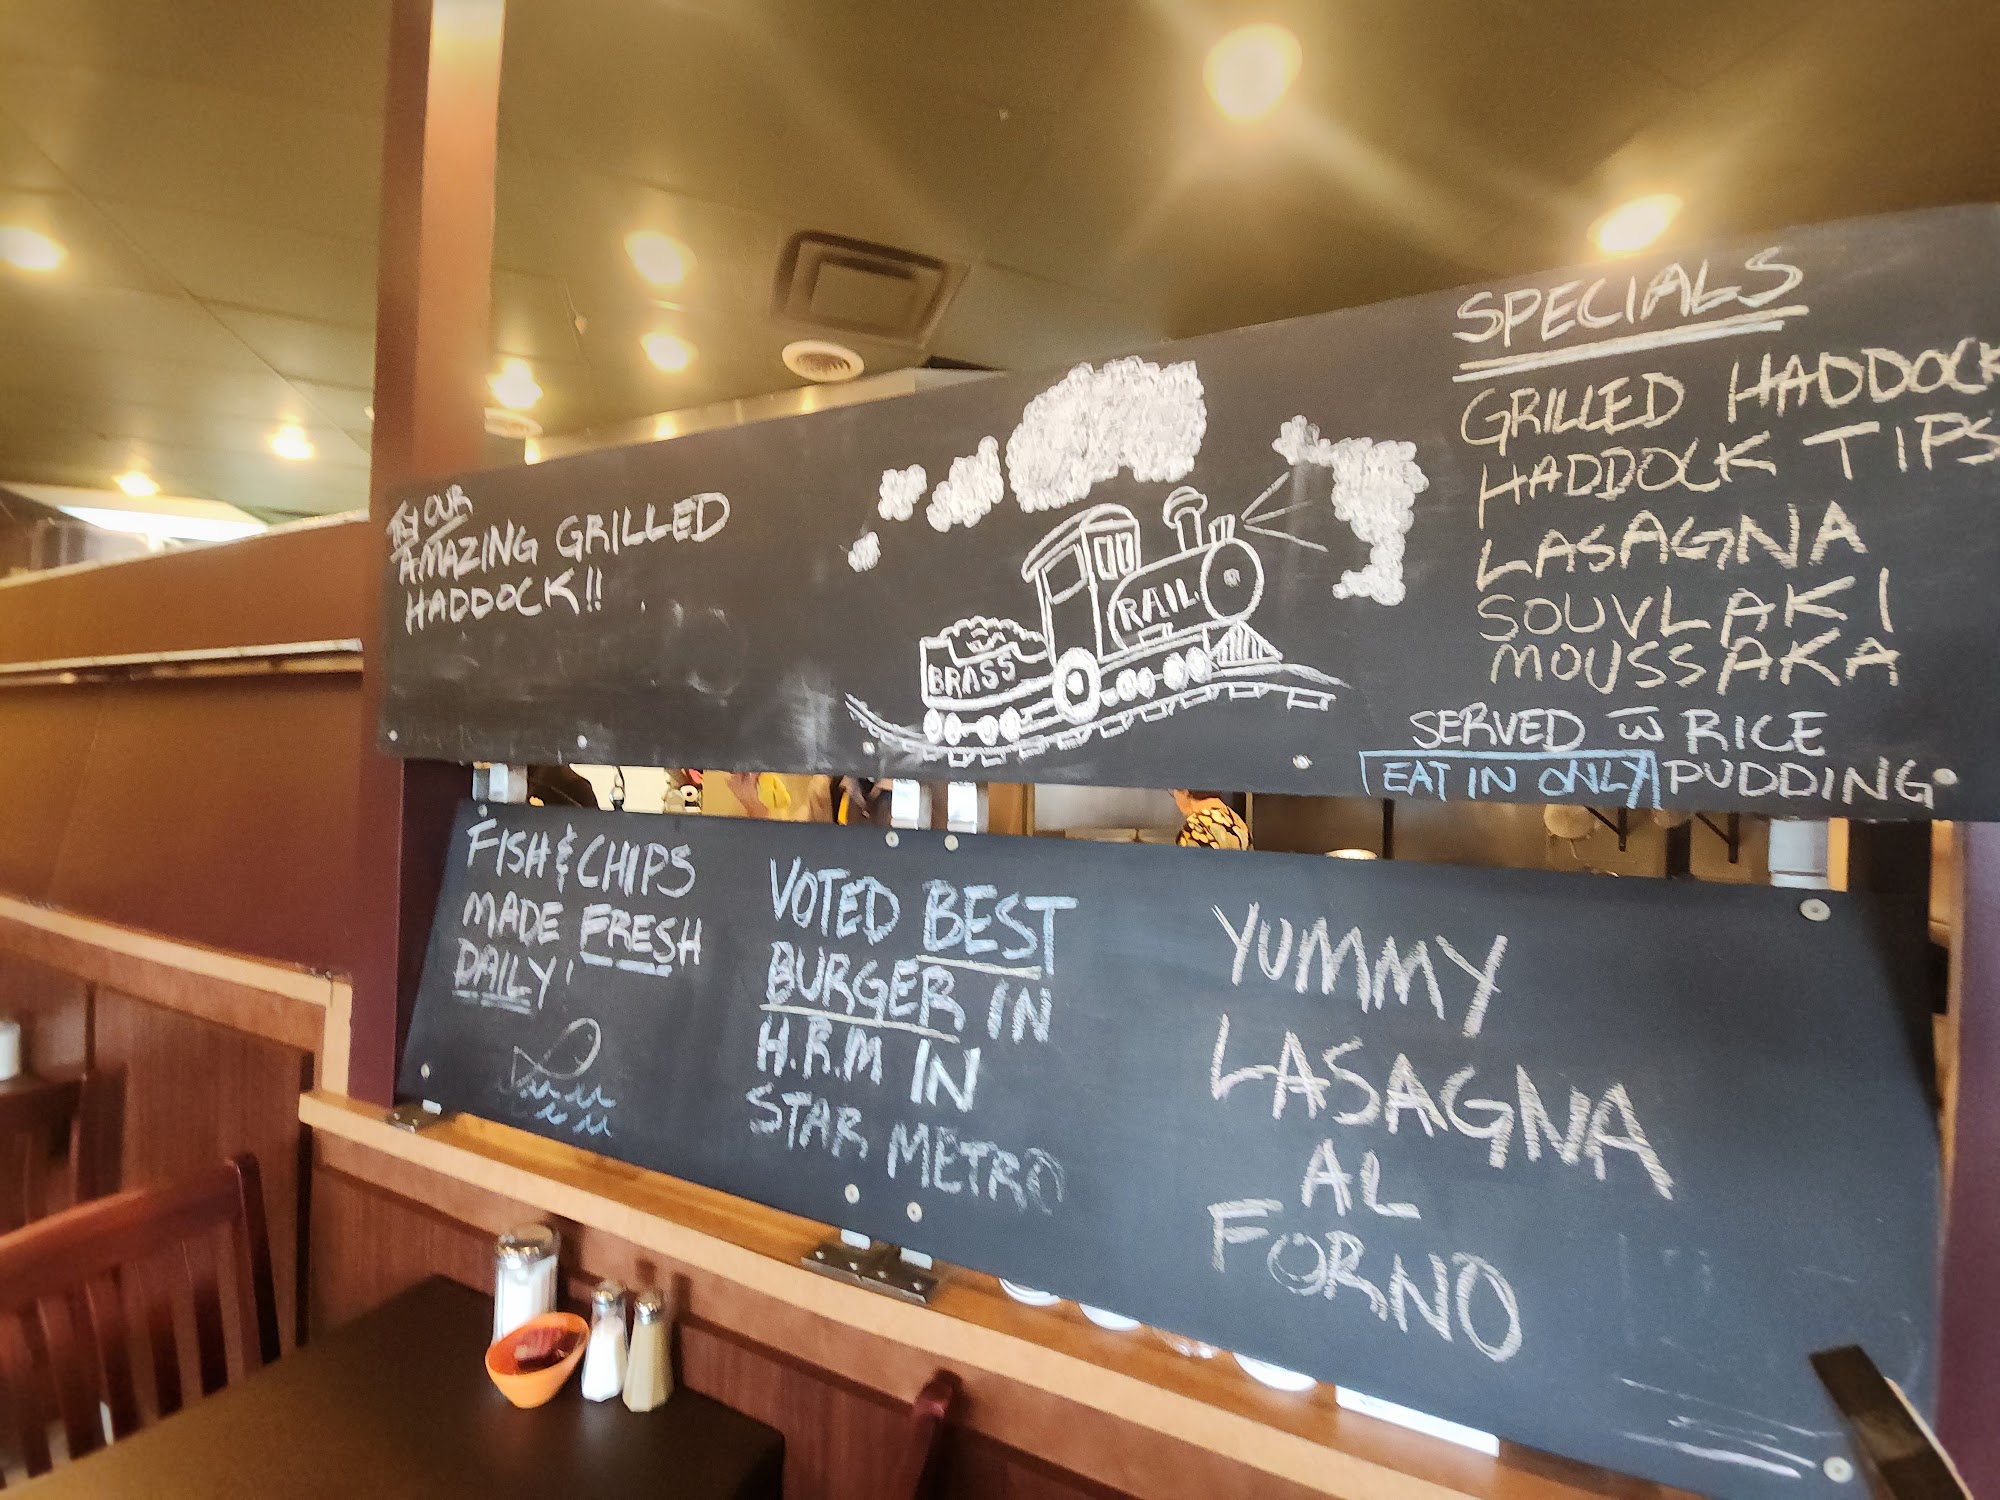 TRY OUR
AMAZING GRILLED
HADDOCK!!
BRASS
RAIL
SPECIALS
GRILLED HADDOCK
HADDOCK TIPS
LASAGNA
SOUVLAKI
MOUSSAKA
SERVED w RICE
EAT IN ONLY PUDDING
FISH & CHIPS
MADE FRESH
DAILY!
VOTED BEST
BURGER IN
H.R.M IN
STAR METRO
YUMMY
LASAGNA
AL
FORNO